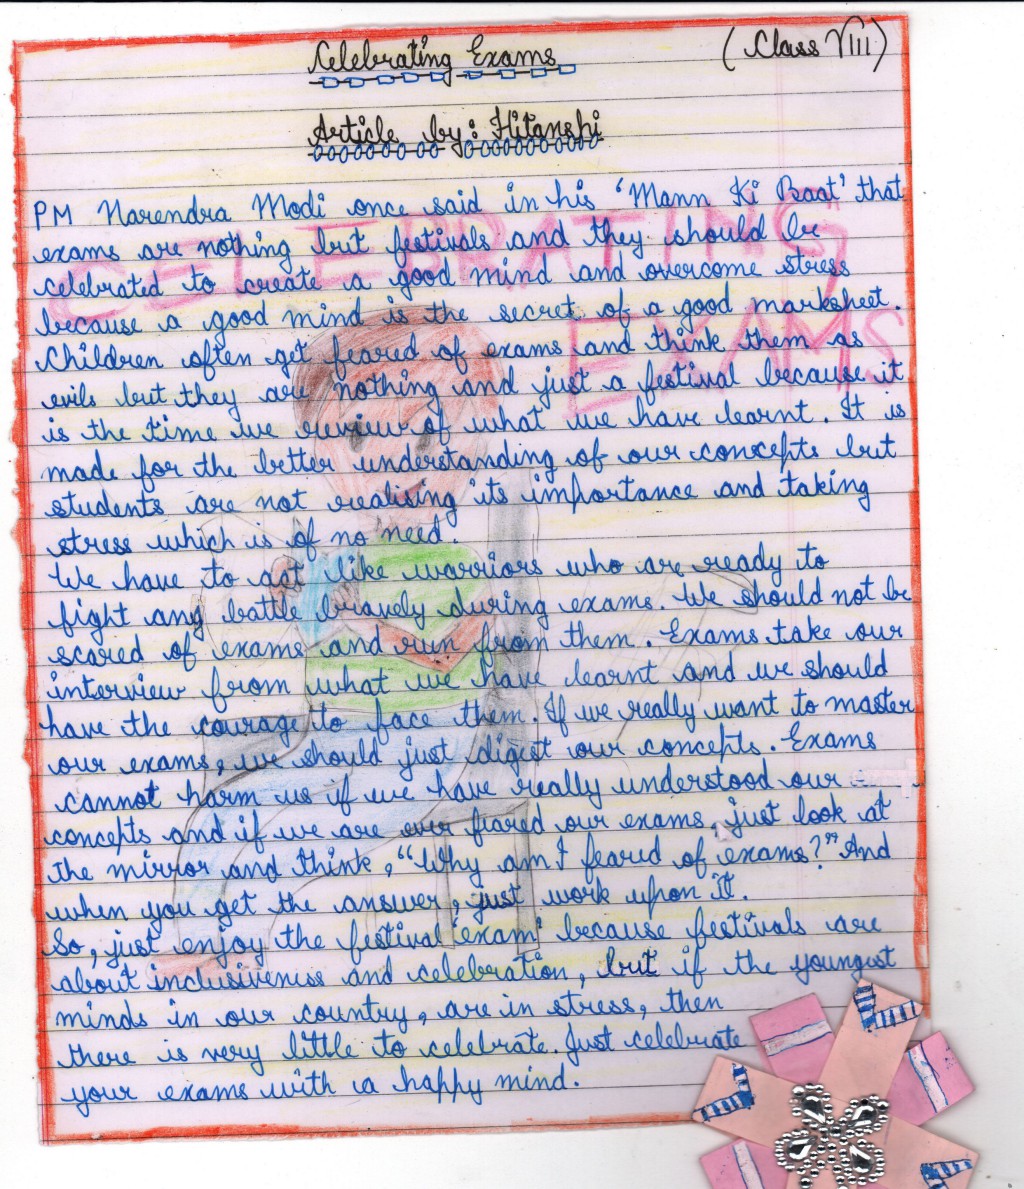 Celebrating Exams
(Class VIII)
Article by: Hitanshi
CELEBRATING
EXAMS
PM Narendra Modi once said in his 'Mann Ki Baat' that
exams are nothing but festivals and they should be
celebrated to create a good mind and overcome stress
because a good mind is the secret of a good marksheet.
Children often get feared of exams and think them as
evils but they are nothing and just a festival because it
is the time we review of what we have learnt. It is
made for the better understanding of our concepts but
students are not realising its importance and taking
stress which is of no need.
We have to act like warriors who are ready to
fight any battle bravely during exams. We should not be
scared of exams and run from them. Exams take our
interview from what we have learnt and we should
have the courage to face them. If we really want to master
our exams, we should just digest our concepts. Exams
cannot harm us if we have really understood our
concepts and if we are ever feared our exams, just look at
the mirror and think, "Why am I feared of exams?" And
when you get the answer, just work upon it.
So, just enjoy the festival 'exam' because festivals are
about inclusiveness and celebration, but if the youngest
minds in our country, are in stress, then
there is very little to celebrate. Just celebrate
your exams with a happy mind.